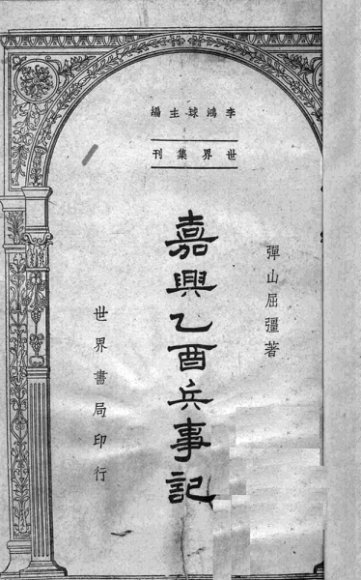 李鴻球主編
世界集刊
彈山屈彊著
嘉興乙酉兵事記
世界書局印行